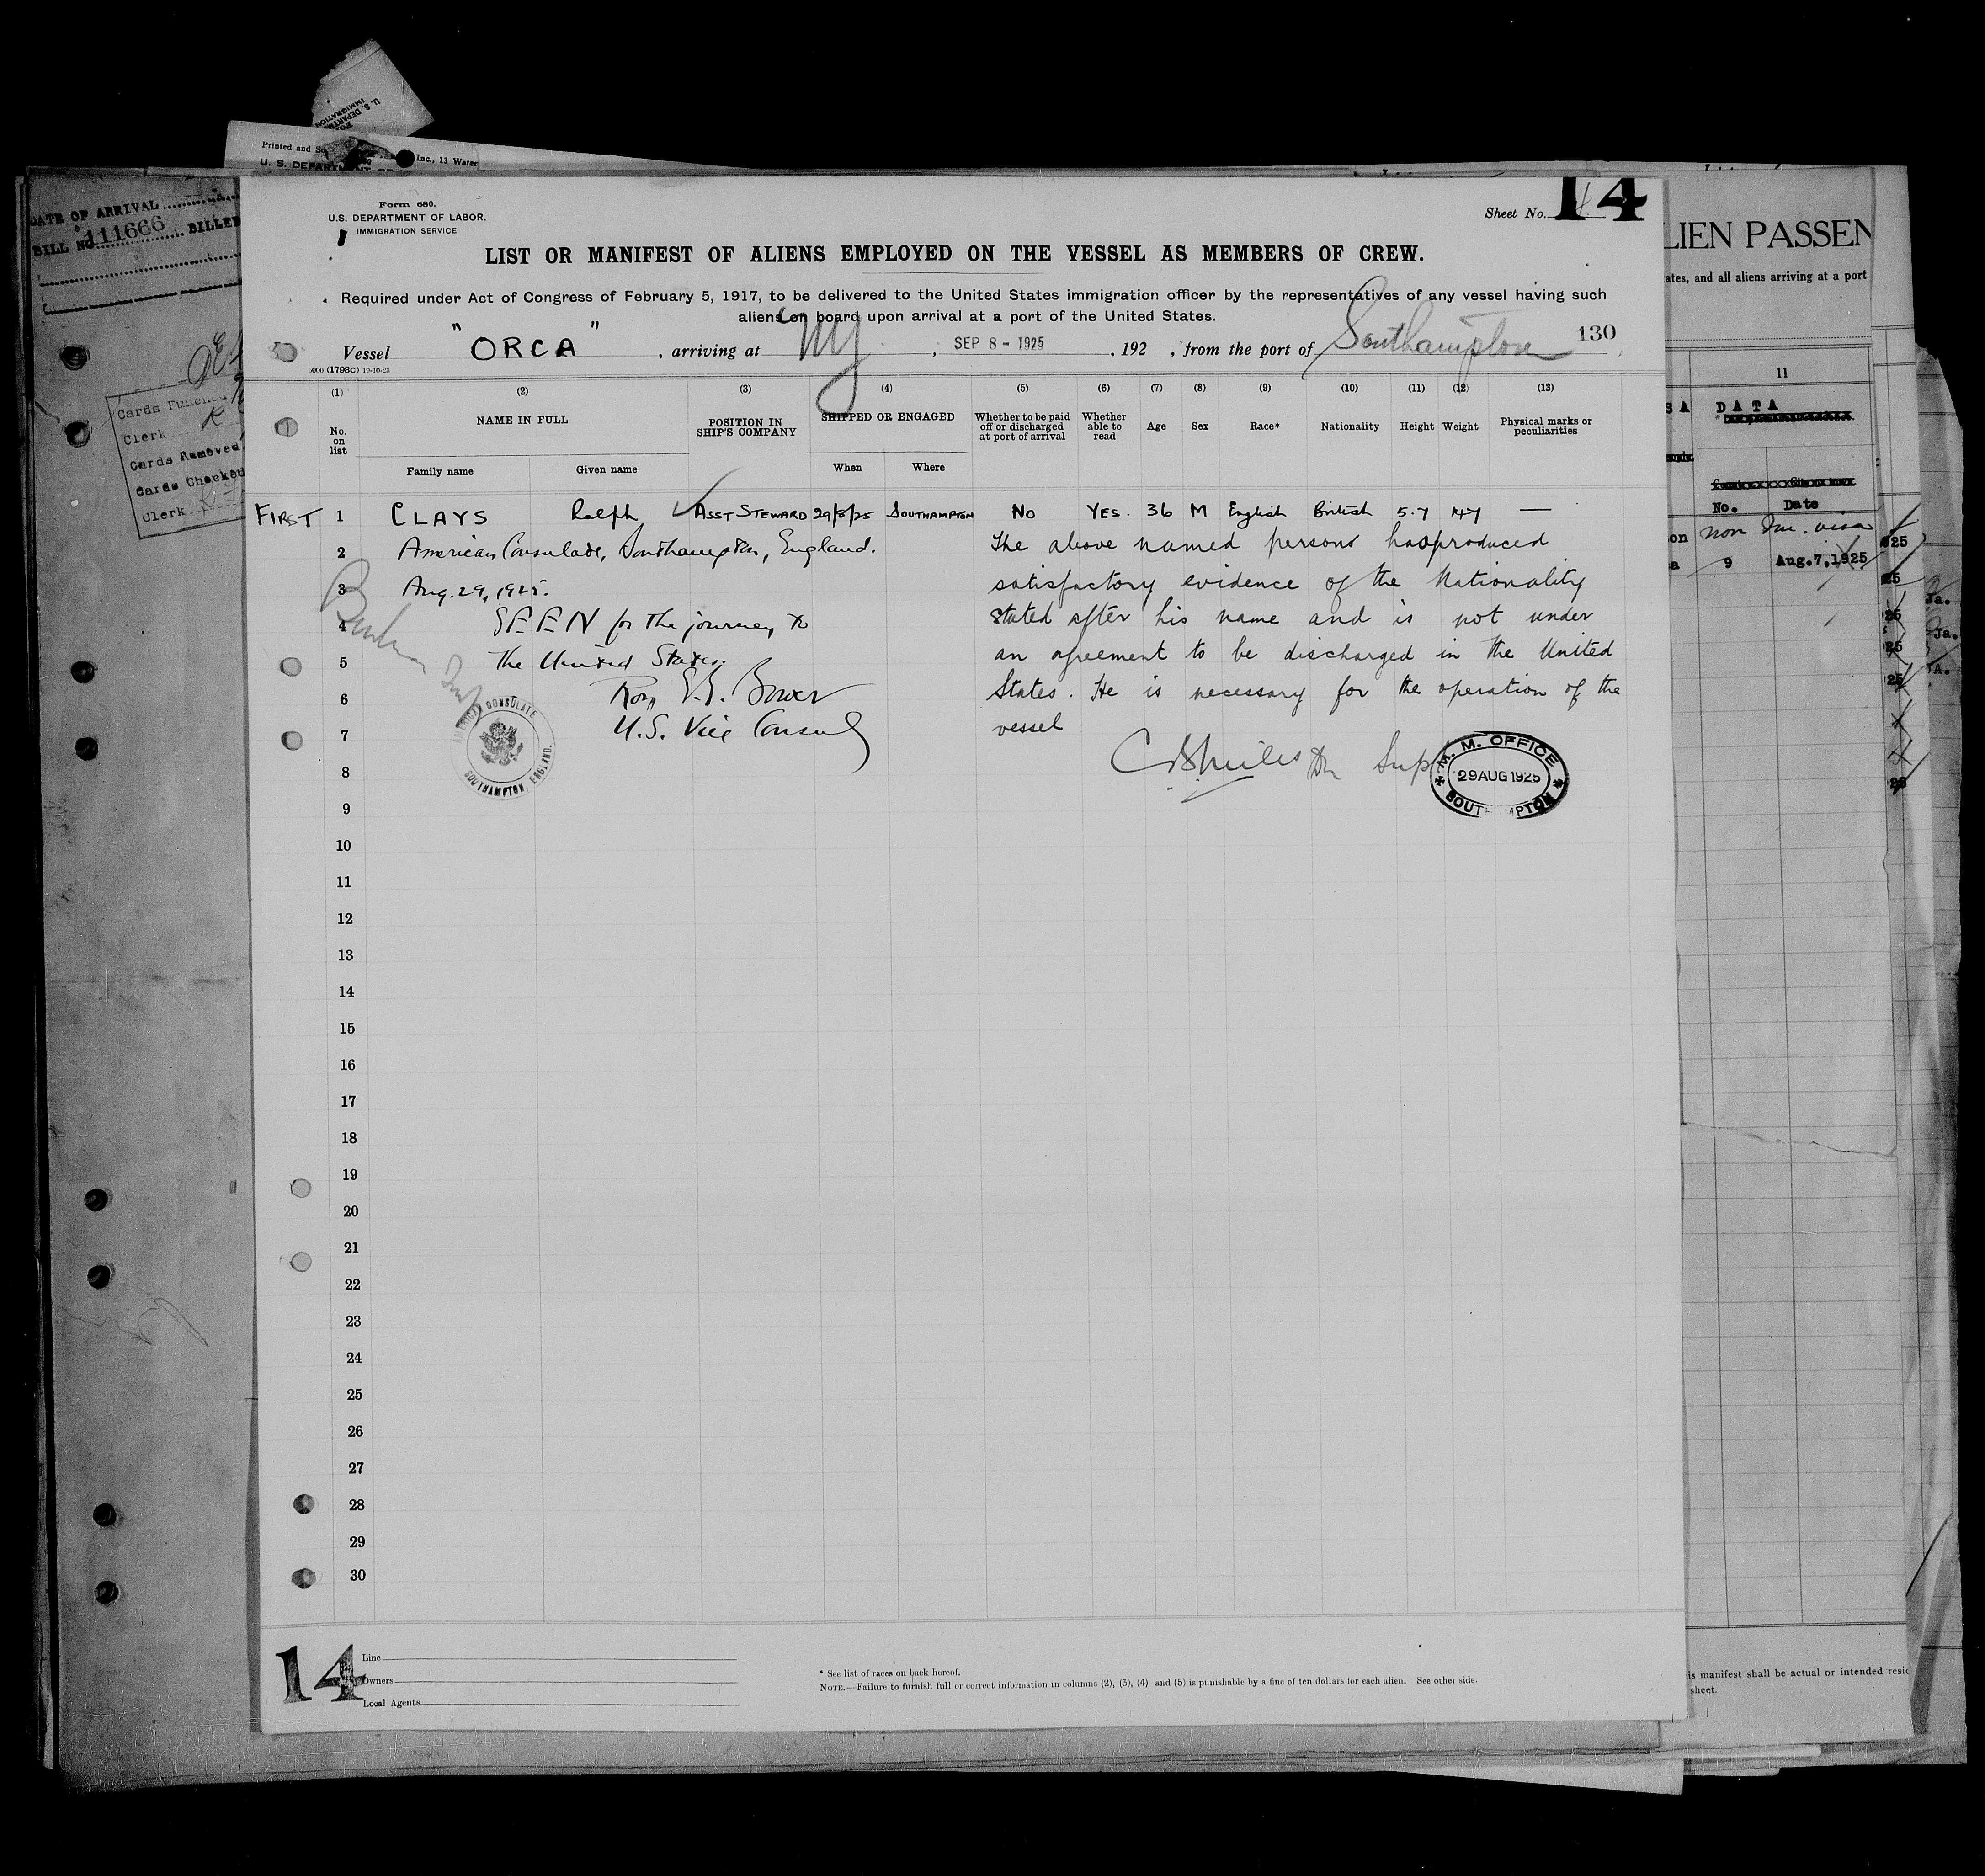 U. S. DEPARTM
IMMIGRATION
Printed and So Inc., 13 Water
U. S. DEPARTMENT OF
DATE OF ARRIVAL
BILL NO. 111666 BILLED
Cards Punched
Clerk R
Cards Removed
Cards Checked
Clerk
Form 680.
U.S. DEPARTMENT OF LABOR.
IMMIGRATION SERVICE
Sheet No. 14
LIST OR MANIFEST OF ALIENS EMPLOYED ON THE VESSEL AS MEMBERS OF CREW.
Required under Act of Congress of February 5, 1917, to be delivered to the United States immigration officer by the representatives of any vessel having such
aliens on board upon arrival at a port of the United States.
Vessel "ORCA", arriving at NY, SEP 8 - 1925, 192 , from the port of Southampton 130
5000 (1798C) 19-10-23
(1) (2) (3) (4) (5) (6) (7) (8) (9) (10) (11) (12) (13)
No. on list NAME IN FULL POSITION IN SHIP'S COMPANY SHIPPED OR ENGAGED Whether to be paid off or discharged at port of arrival Whether able to read Age Sex Race* Nationality Height Weight Physical marks or peculiarities
Family name Given name When Where
FIRST 1 CLAYS Ralph ASST STEWARD 29/8/25 SOUTHAMPTON NO YES. 36 M English British 5.7 147 —
2 American Consulate, Southampton, England. The above named persons has produced
3 Aug. 29, 1925. satisfactory evidence of the Nationality
4 SEEN for the journey to stated after his name and is not under
5 the United States. an agreement to be discharged in the United
6 Roy E.B. Bower States. He is necessary for the operation of the
7 U.S. Vice Consul vessel
AMERICAN CONSULATE
SOUTHAMPTON, ENGLAND.
8 Sup
M. M. OFFICE
29 AUG 1925
SOUTHAMPTON
9
10
11
12
13
14
15
16
17
18
19
20
21
22
23
24
25
26
27
28
29
30
14
Line
Owners
Local Agents
* See list of races on back hereof.
NOTE.—Failure to furnish full or correct information in columns (2), (3), (4) and (5) is punishable by a fine of ten dollars for each alien. See other side.
LIEN PASSEN
ates, and all aliens arriving at a port
11
S A DATA
No. Date
non Im. visa
9 Aug.7,1925
25
25
25
25
25
25
Ja.
Ja.
A.
is manifest shall be actual or intended resid
sheet.